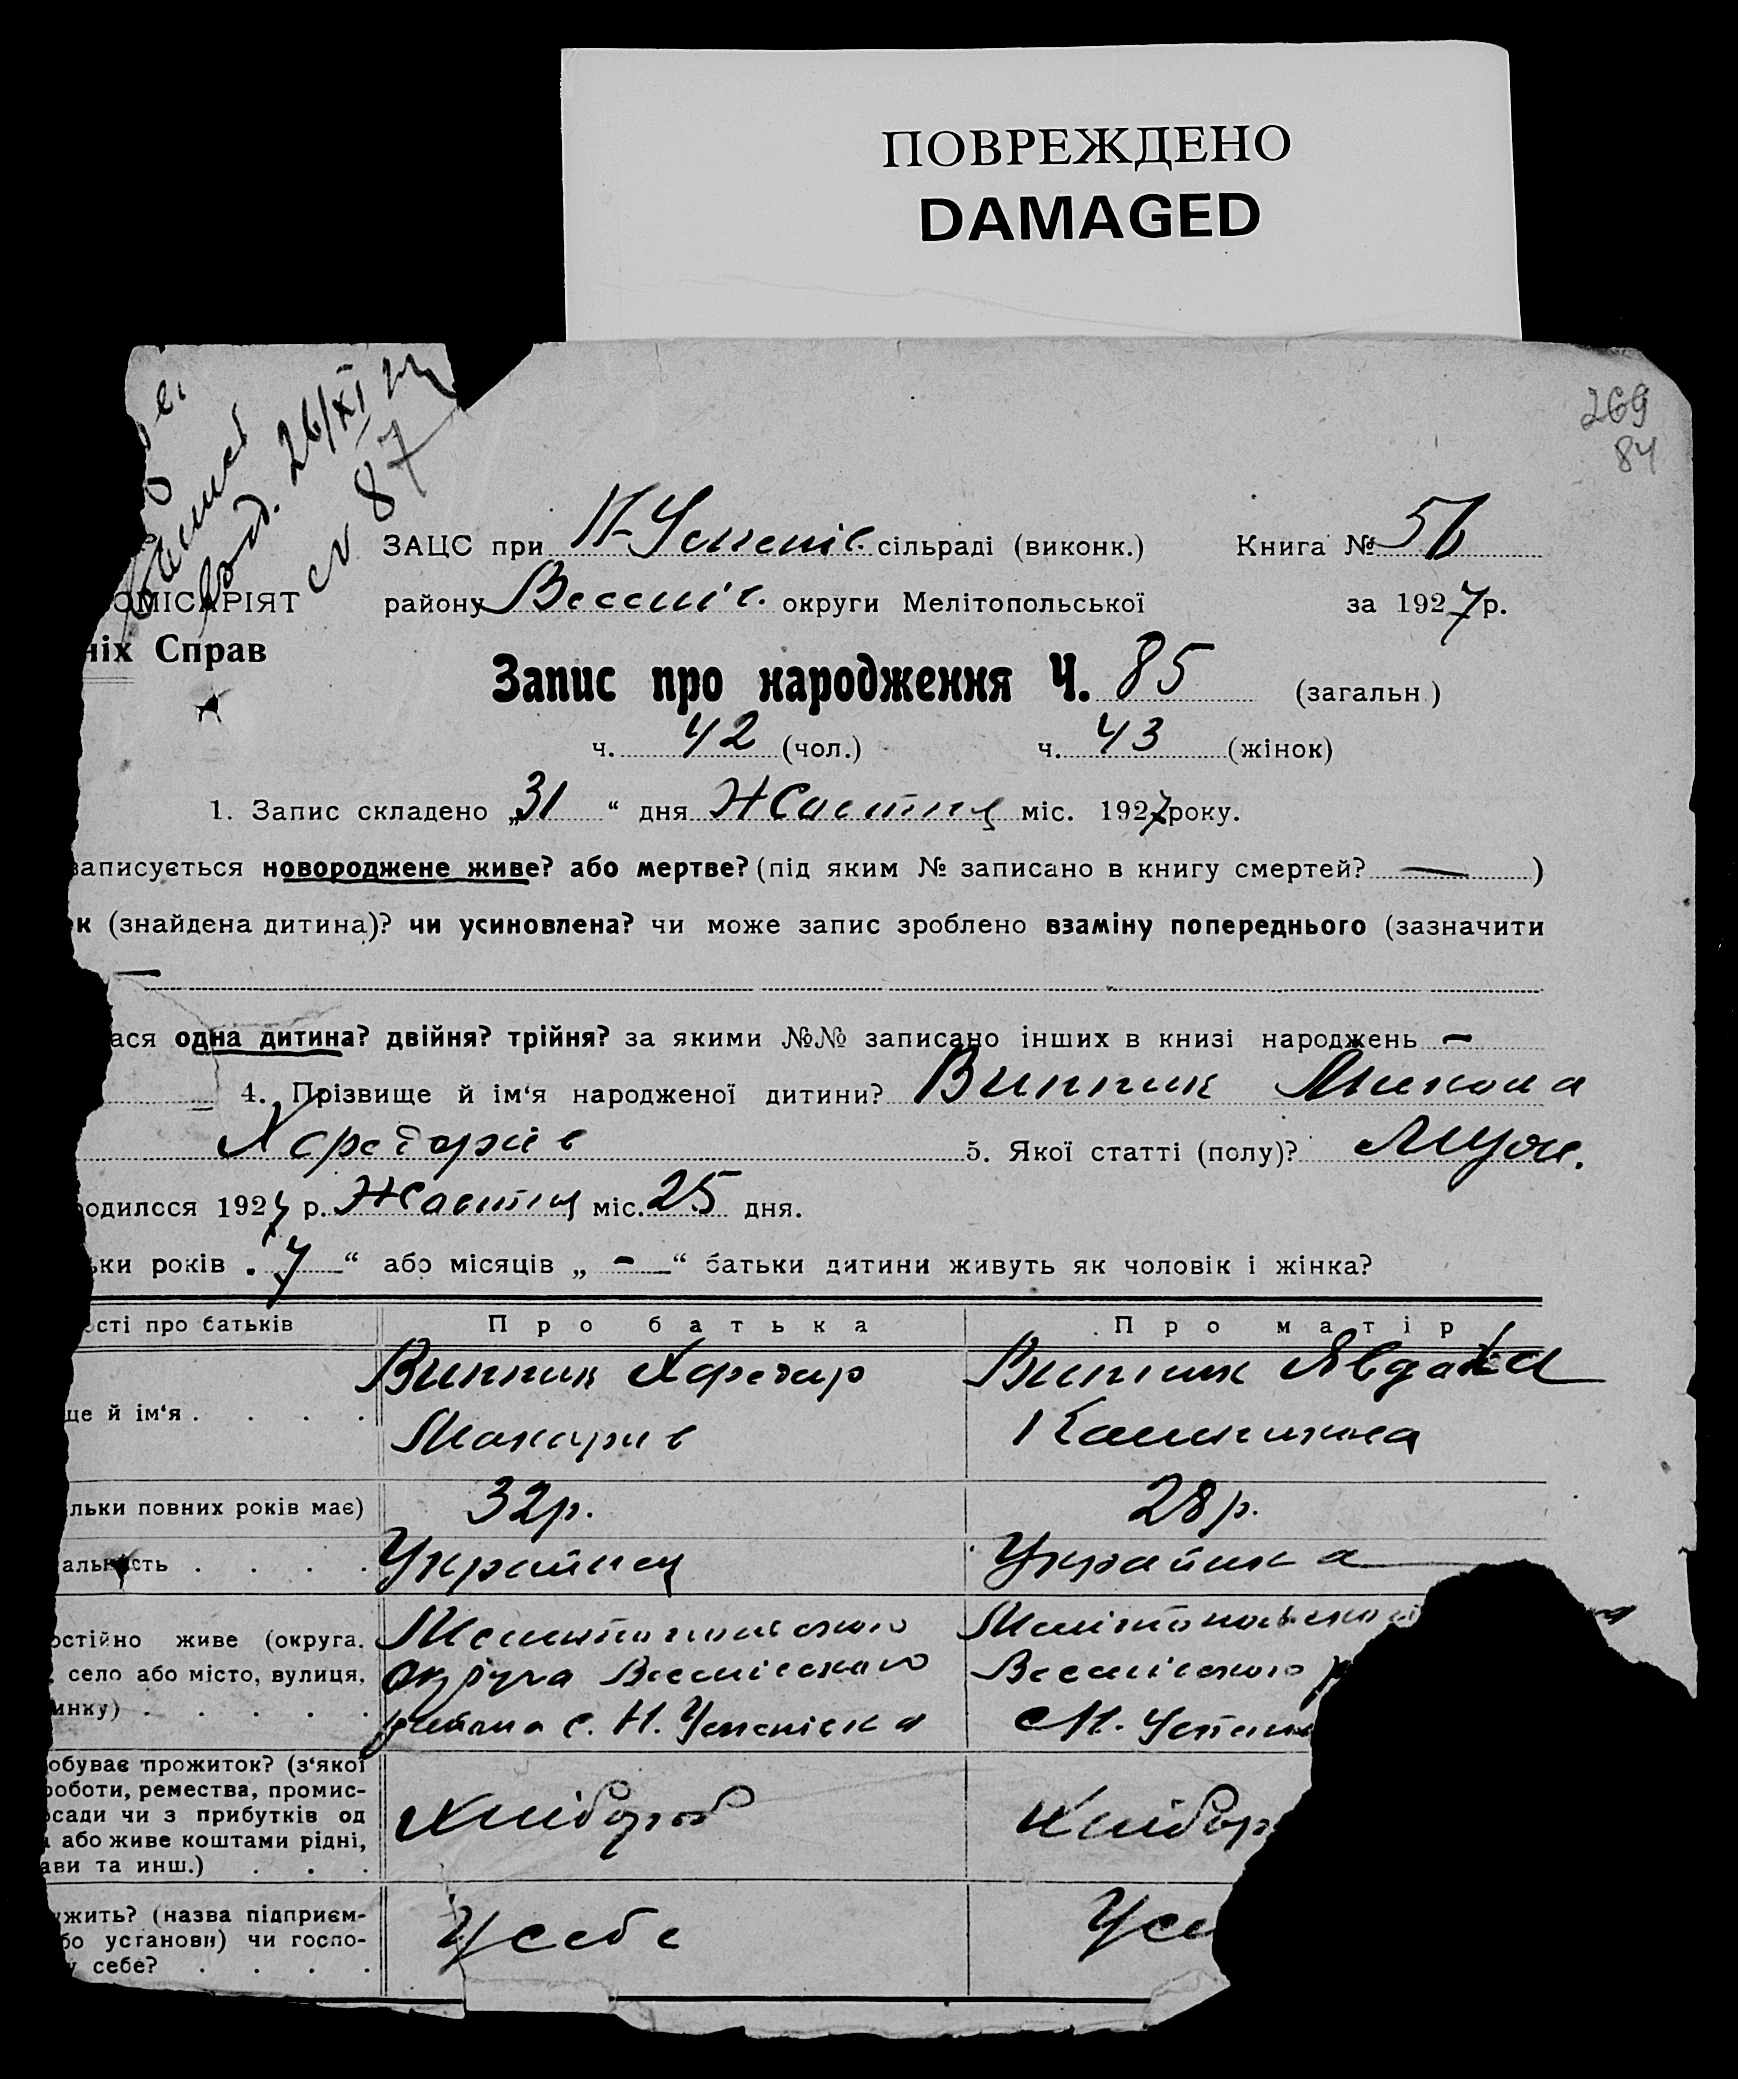 ПОВРЕЖДЕНО
DAMAGED
269
84
вид. 26/XI
№ 87
ЗАЦС при Н-Успенів. сільраді (виконк.) Книга № 56
ОМІСАРІЯТ району Веселів. округи Мелітопольської за 1927 р.
ніх Справ
Запис про народження Ч. 85 (загальн.)
ч. 42 (чол.) ч. 43 (жінок)
1. Запис складено „31“ дня Жовтня міс. 1927 року.
записується новороджене живе? або мертве? (під яким № записано в книгу смертей? — )
к (знайдена дитина)? чи усиновлена? чи може запис зроблено взаміну попереднього (зазначити
—
ася одна дитина? двійня? трійня? за якими №№ записано інших в книзі народжень –
4. Прізвище й ім‘я народженої дитини? Винник Микола
5. Якої статті (полу)? Муж.
одилося 1927 р. Жовтня міс. 25 дня.
ьки років „7“ або місяців „ – “ батьки дитини живуть як чоловік і жінка?
ості про батьків Про батька Про матір
Винник Винник Явдоха
ще й ім‘я . . . .
Макарів
ільки повних років має) 32р. 28р.
альність . . . . Украінец Украінка
остійно живе (округа, Мелитопольского Мелітопольскоі
, село або місто, вулиця, Округа Веселівского Веселівского р
инку) . . . . . района с. Н. Успенівка с Н. Успен
обуває прожиток? (з‘якої
роботи, ремества, промис-
осади чи з прибутків од Хлібороб Хлібор
а або живе коштами рідні,
ави та инш.) . . .
ужить? (назва підприєм-
бо установи) чи госпо- У себе У се
у себе? . . . .